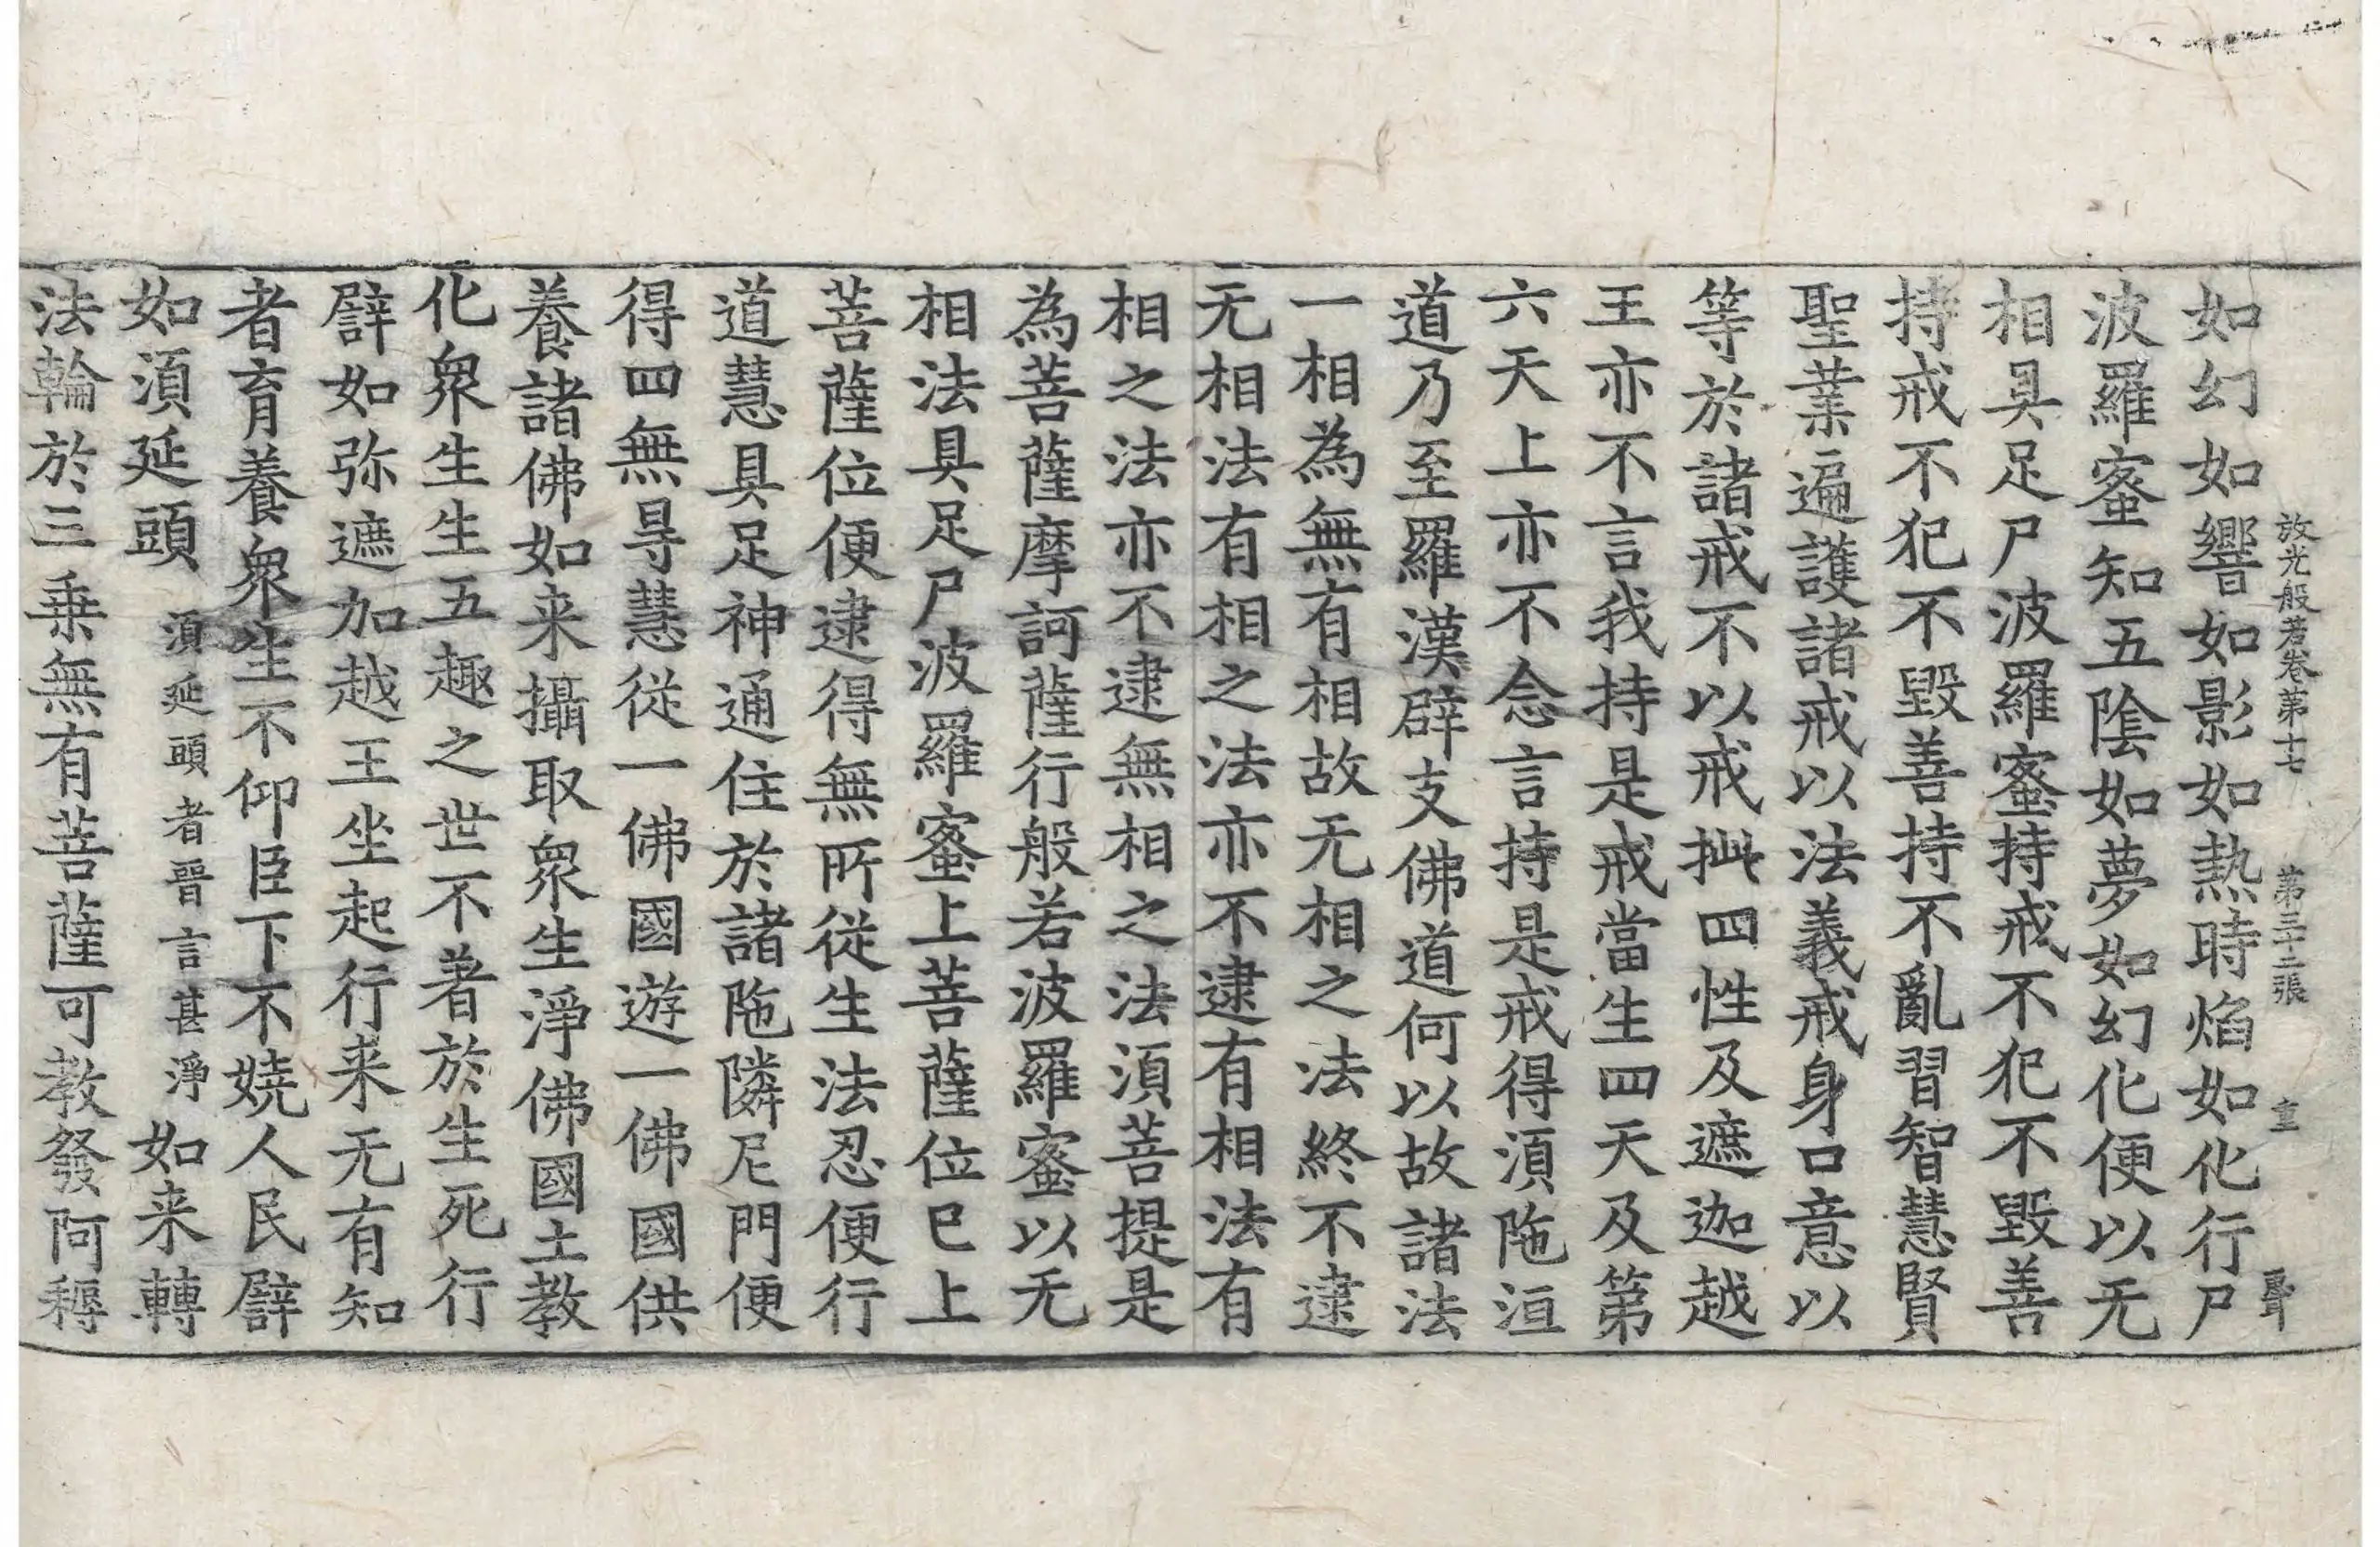 放光般若卷第十七 第三十二張 重 聖
如幻如響如影如熱時焰如化行尸
波羅蜜知五陰如夢如幻化便以无
相具足尸波羅蜜持戒不犯不毀善
持戒不犯不毀善持不亂習智慧賢
聖業遍護諸戒以法義戒身口意以
等於諸戒不以戒拁四性及遮迦越
王亦不言我持是戒當生四天及第
六天上亦不念言持是戒得須陁洹
道乃至羅漢辟支佛道何以故諸法
一相為無有相故无相之法終不逮
无相法有相之法亦不逮有相法有
相之法亦不逮無相之法須菩提是
為菩薩摩訶薩行般若波羅蜜以无
相法具足尸波羅蜜上菩薩位已上
菩薩位便逮得無所從生法忍便行
道慧具足神通住於諸陁隣尼門便
得四無㝵慧從一佛國遊一佛國供
養諸佛如来攝取衆生淨佛國土教
化衆生生五趣之世不著於生死行
譬如弥遮加越王坐起行来无有知
者育養衆生不仰臣下不嬈人民譬
如須延頭 須延頭者晉言甚淨 如来轉
法輪於三乘無有菩薩可教發阿耨